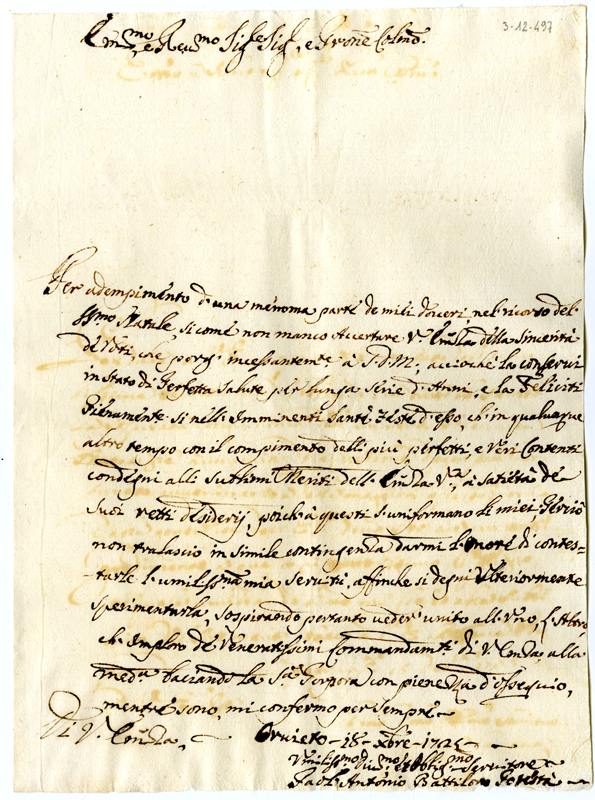 3-12-497
Em.mo, e Rev.mo Sig.e Sig.e, e Prone Colmo.
Per adempimento d'una menoma parte de miei doveri nel ricorso del
SS.mo Natale, si come non manco accertare V. Em.za della sincerità
de Voti, che porgo incessantem.te à S.D.M., acciochè la conservi
in stato di perfetta salute per lunga serie d'Anni, e la Feliciti
pienamente si nell'imminenti Sante Feste d'esso, ch'in qualunque
altro tempo con il compimento delli più perfetti, e veri Contenti
condegni alli sublimi Meriti dell'Em.za V.a, à satietà de
Suoi retti desiderij, poich'à questi s'uniformano li miei, Perciò
non tralascio in simile contingenza darmi l'honore di contes=
tarle l'umiliss.ma mia Servitù, affinche si degni ulteriormente
sperimentarla, sospirando pertanto veder unito all'uno, l'Altro
ch'Imploro de Veneratissimi Commandam.ti di V. Em.za, alla
med.a baciando la S.a Porpora con pienezza d'ossequio,
mentre sono, mi confermo per sempre
Di V. Em.za,
Orvieto - 18 - Xbre - 1725
Umiliss.mo Div.mo et Oblig.mo Servitore
Paol'Antonio Battiloro Potestà